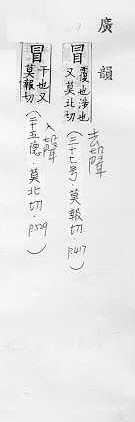 廣韻
冒 覆也涉也
又莫北切
(三十七号·莫報切 P417)
去聲
冒 干也又
莫報切
(二十五德·莫北切·P529)
入聲